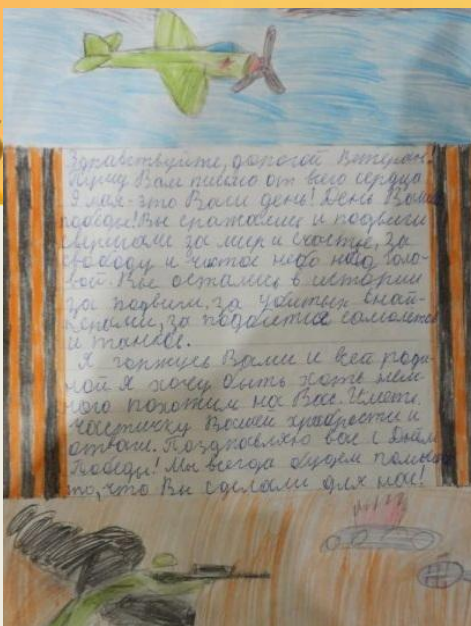 Здравствуйте, дорогой Ветеран.
Пишу Вам письмо от всего сердца
9 мая-это Ваш день! День Вашей
победы! Вы сражались и подвиги
свершали за мир и счастье, за
свободу и чистое небо над голо-
вой. Вы остались в истории
за подвиги, за убитых снай-
перами, за подбитые самолёты
и танков.
Я горжусь Вами и всей роди-
ной Я хочу быть хоть нем-
ного похожим на Вас. Иметь
частичку Вашей храбрости и
отваги. Поздравляю вас с Днём
Победы! Мы всегда будем помнить
то, что Вы сделали для нас!